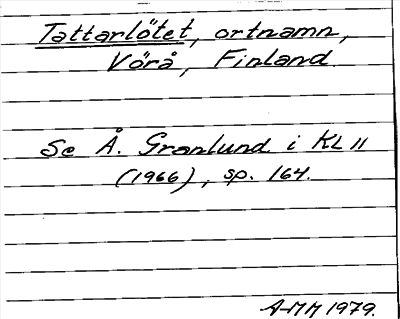 Tattarlötet, ortnamn,
Vörå, Finland.
Se Å. Granlund i KL 11
(1966), sp. 164.
A-MM 1979.